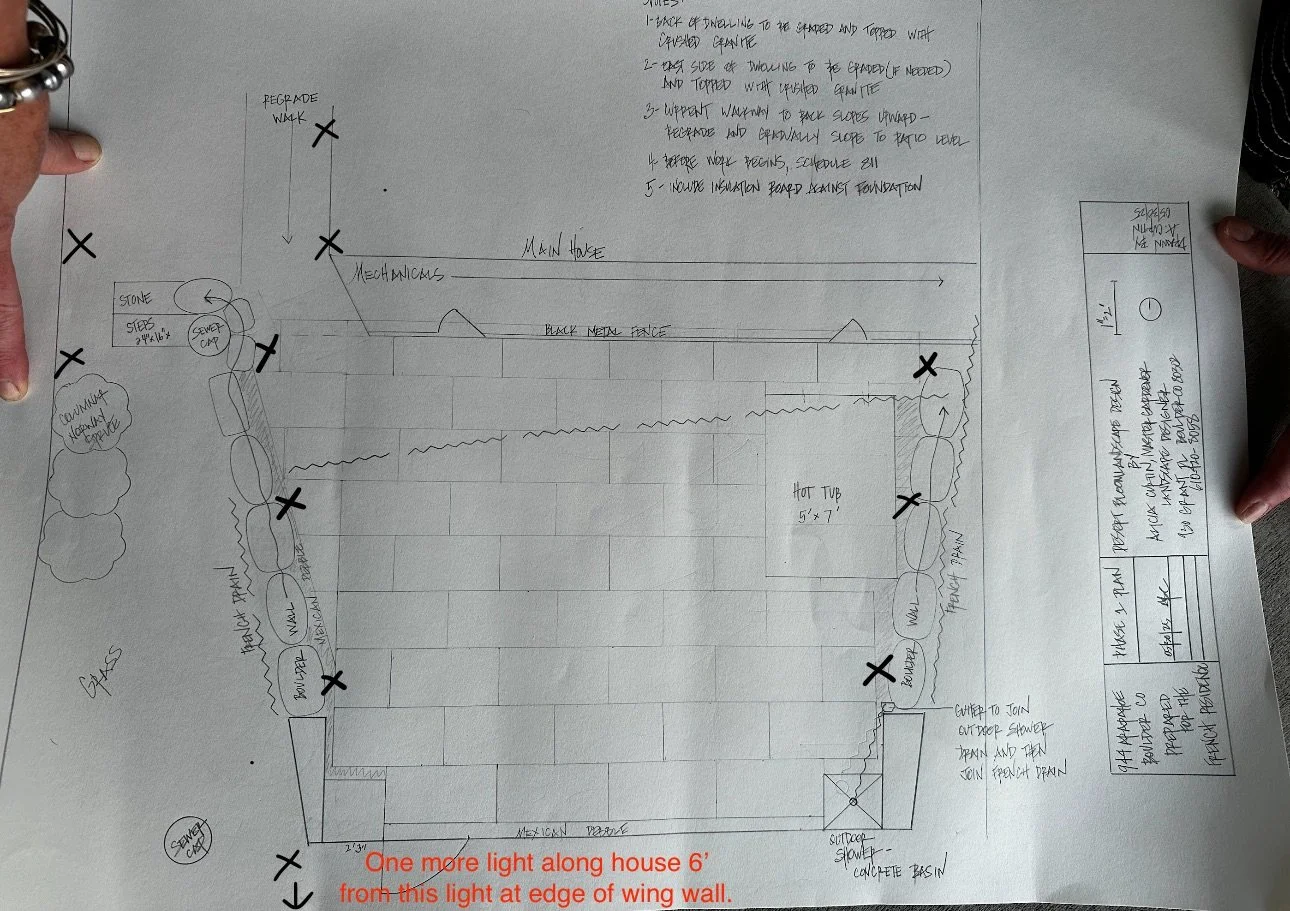 NOTES:
1- BACK OF DWELLING TO BE GRADED AND TOPPED WITH
CRUSHED GRANITE
2- EAST SIDE OF DWELLING TO BE GRADED (IF NEEDED)
AND TOPPED WITH CRUSHED GRANITE
3- CURRENT WALKWAY TO BACK SLOPES UPWARD -
REGRADE AND GRADUALLY SLOPE TO PATIO LEVEL
4- BEFORE WORK BEGINS, SCHEDULE 811
5- INCLUDE INSULATION BOARD AGAINST FOUNDATION
REGRADE
WALK
MAIN HOUSE
MECHANICALS
STONE
STEPS
24"x16"x
SEWER
CAP
BLACK METAL FENCE
COLUMNAR
NORWAY
SPRUCE
HOT TUB
5'x7'
FRENCH DRAIN
BOULDER WALL
MEXICAN PEBBLE
BOULDER WALL
FRENCH DRAIN
GRASS
GUTTER TO JOIN
OUTDOOR SHOWER
DRAIN AND THEN
JOIN FRENCH DRAIN
SEWER
CAP
MEXICAN PEBBLE
OUTDOOR
SHOWER -
CONCRETE BASIN
One more light along house 6’
from this light at edge of wing wall.
DRAWN BY
A. CURTIN
1"=2'
DESERT BLOOM LANDSCAPE DESIGN
BY
ALICIA CURTIN, MASTER GARDENER
LANDSCAPE DESIGNER
BOULDER CO 80302
PHASE 1 PLAN
944 ARAPAHOE
BOULDER CO
PREPARED
FOR THE
FRENCH RESIDENCE